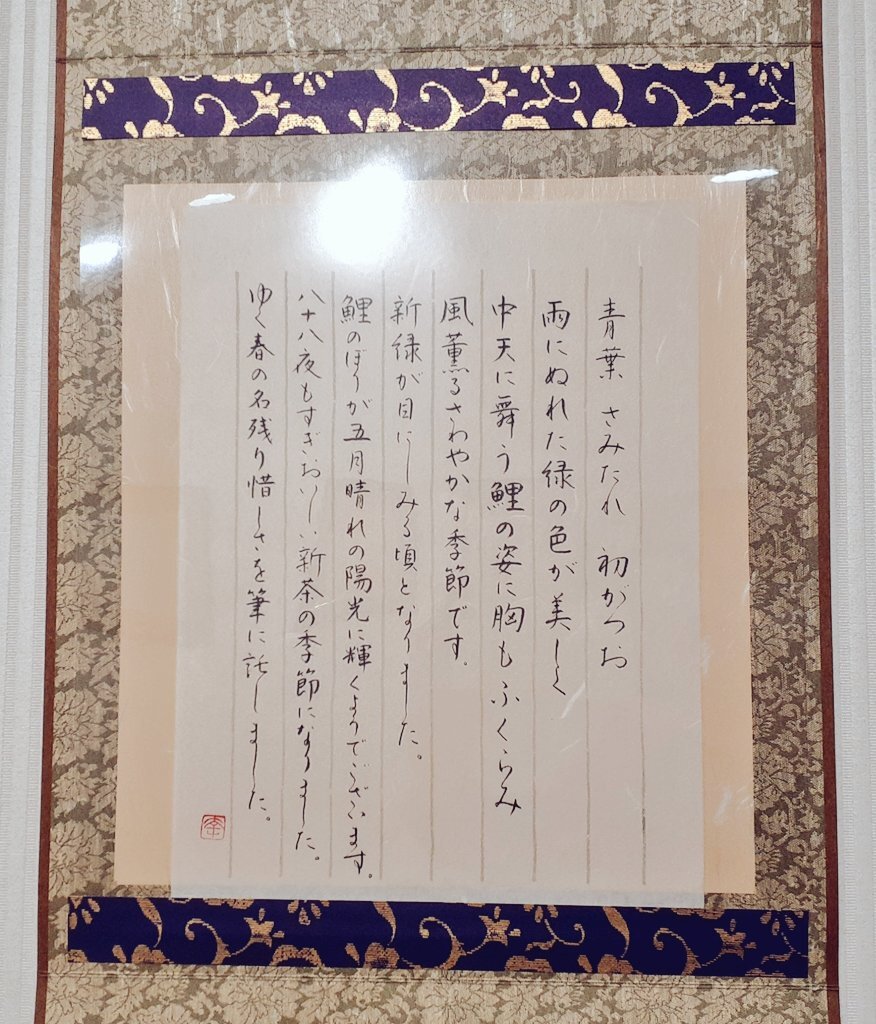 青葉 さみだれ 初がつお
雨にぬれた緑の色が美しく
中天に舞う鯉の姿に胸もふくらみ
風薫るさわやかな季節です。
新緑が目にしみる頃となりました。
鯉のぼりが五月晴れの陽光に輝くようでございます。
八十八夜もすぎおいしい新茶の季節になりました。
ゆく春の名残り惜しさを筆に託しました。